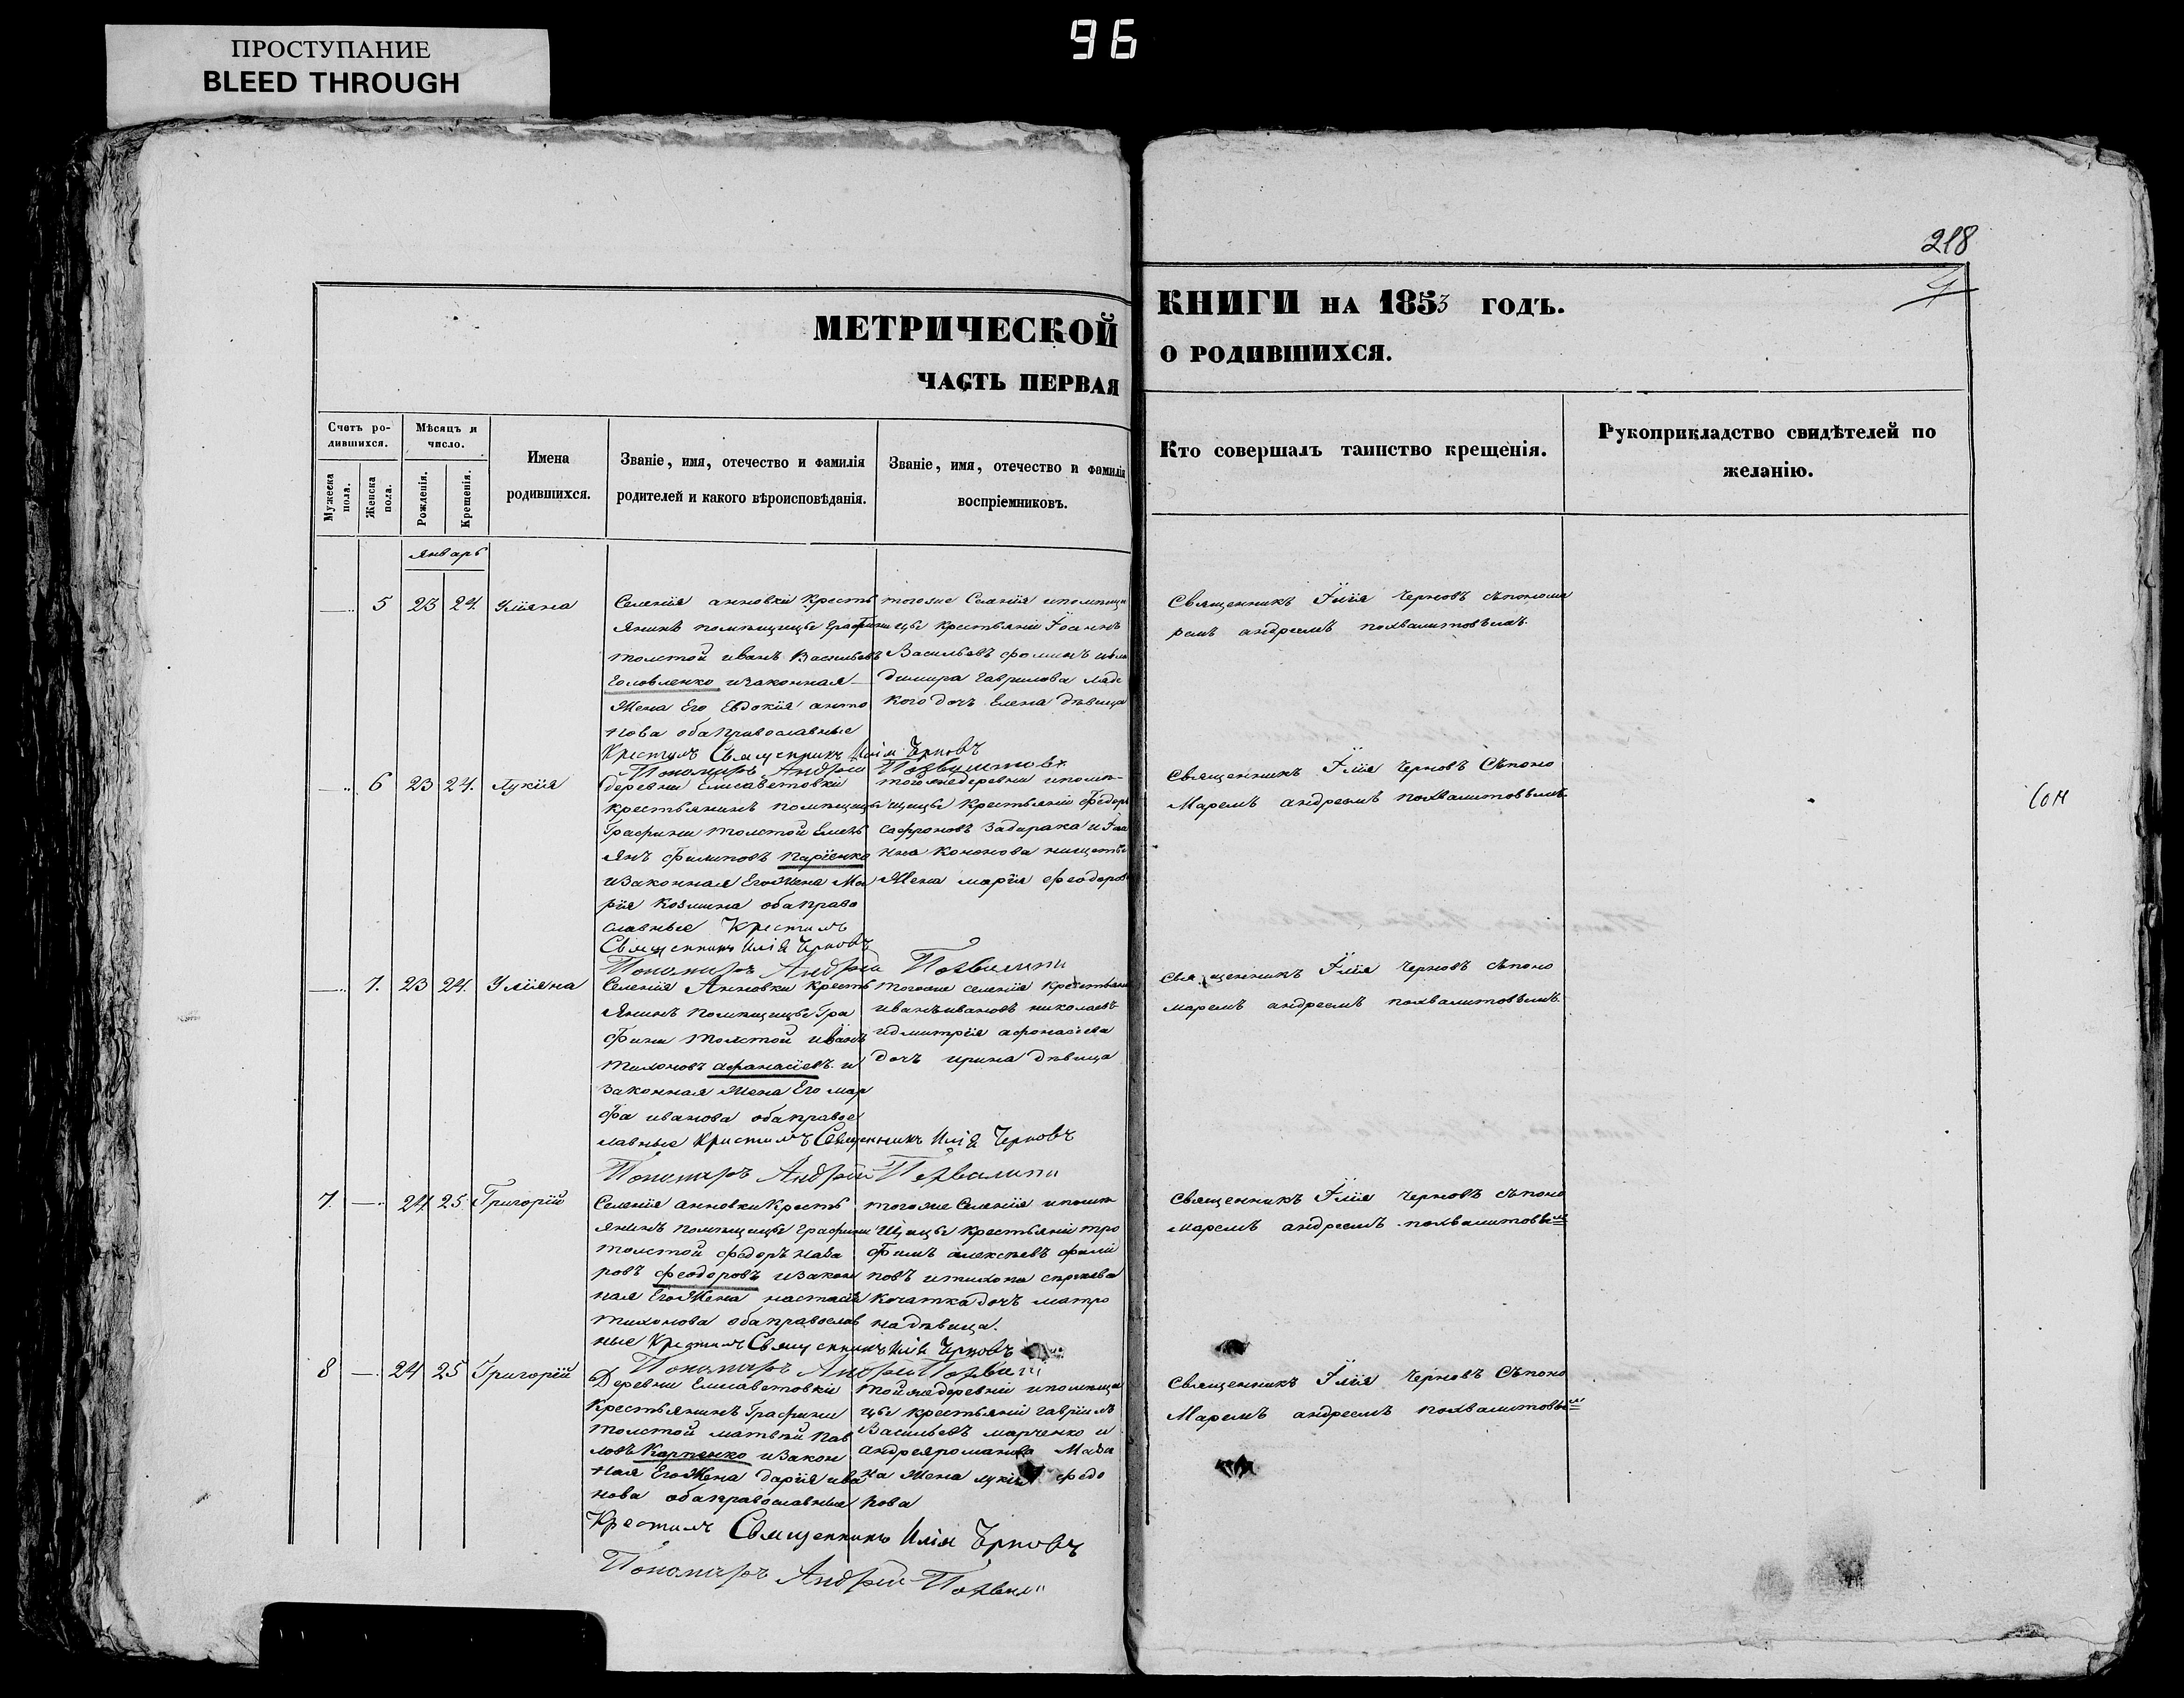 96
ПРОСТУПАНИЕ
BLEED THROUGH
218
МЕТРИЧЕСКОЙ КНИГИ НА 1853 ГОДЪ.
ЧАСТЬ ПЕРВАЯ О РОДИВШИХСЯ.
Счетъ родившихся.
Мужеска пола.
Женска пола.
Мѣсяцъ и число.
Рожденія.
Крещенія.
Имена родившихся.
Званіе, имя, отечество и фамилія родителей и какого вѣроисповѣданія.
Званіе, имя, отечество и фамилія воспріемниковъ.
Кто совершалъ таинство крещенія.
Рукоприкладство свидѣтелей по желанію.
Январь
5 23 24. Уліяна
Селенія анновки Кресть
янинъ помѣщицы Графини
толстой иванъ Васильевъ
Головленко изаконная
Жена Его Евдокія анто
нова обаправославные
тогоже Селенія ипомѣщи
цы крестьяніи Іоаннъ
Васильевъ фоминъ ивла
димира гаврилова
кого дочъ Елена дѣвица
Священникъ Илія Черновъ съпонома
ремъ андреемъ похвалитовымъ
Крестилъ Священникъ Илія Чрновъ
Пономаръ Андрей
6 23 24. Лукія
деревни Елисаветовки
крестьянинъ помѣщицы
Графини толстой Емель
янъ филиповъ
изаконная Егожена Ма
рія Козмина обаправо
славные Крестилъ
Священникъ Илія Чрновъ
Пономаръ Андрей
тойжедеревни ипомѣ
щицы Крестьяніи федоръ
сафроновъ задирака и
Кононова
Жена марія феодоров
Священникъ Илія Черновъ Съпоно
Маремъ андреемъ похвалитовымъ
7. 23 24. Уліяна
Селенія Анновки Кресть
янинъ Помѣщицы Гра
фини толстой иванъ
тихоновъ афанасіевъ и
законная Жена Его мар
фа иванова обаправос
лавные Крестилъ Священникъ Илія Черновъ
Пономаръ Андрей
тогоже селенія крестьяни
иванъивановъ николаевъ
идмитрія афонасіева
дочъ ирина дѣвица
Священникъ Илія Черновъ съпоно
маремъ андреемъ похвалитовымъ
7. 24 25 Григорій
Селенія анновки Кресть
янинъ помѣщицы графини
толстой федоръ наза
ровъ феодоровъ изакон
ная ЕгоЖена настасія
тихонова обаправослав
ные Крестилъ Священникъ Илія Чрновъ
Пономаръ Андрей
тогоже Селенія ипомѣ
щицы Крестьяніи тро
фимъ алексѣевъ фили
повъ итихона
дочъ матро
на дѣвица.
Священникъ Илія Черновъ съпоно
маремъ андреемъ похвалитовым
8 24 25 Григорій
Деревни Елисаветовки
Крестьянинъ Графини
толстой матвѣй пав
ловъ Карпенко изакон
ная ЕгоЖена дарія ива
нова обаправославныя
Крестилъ Священникъ Илія Чрновъ
Пономаръ Андрей
тойжедеревни ипомѣщи
цы крестьяніи гавріилъ
Васильевъ марченко и
андреяроманова
на Жена лукія федо
рова
Священникъ Илія Черновъ Съпоно
Маремъ андреемъ похвалитовым